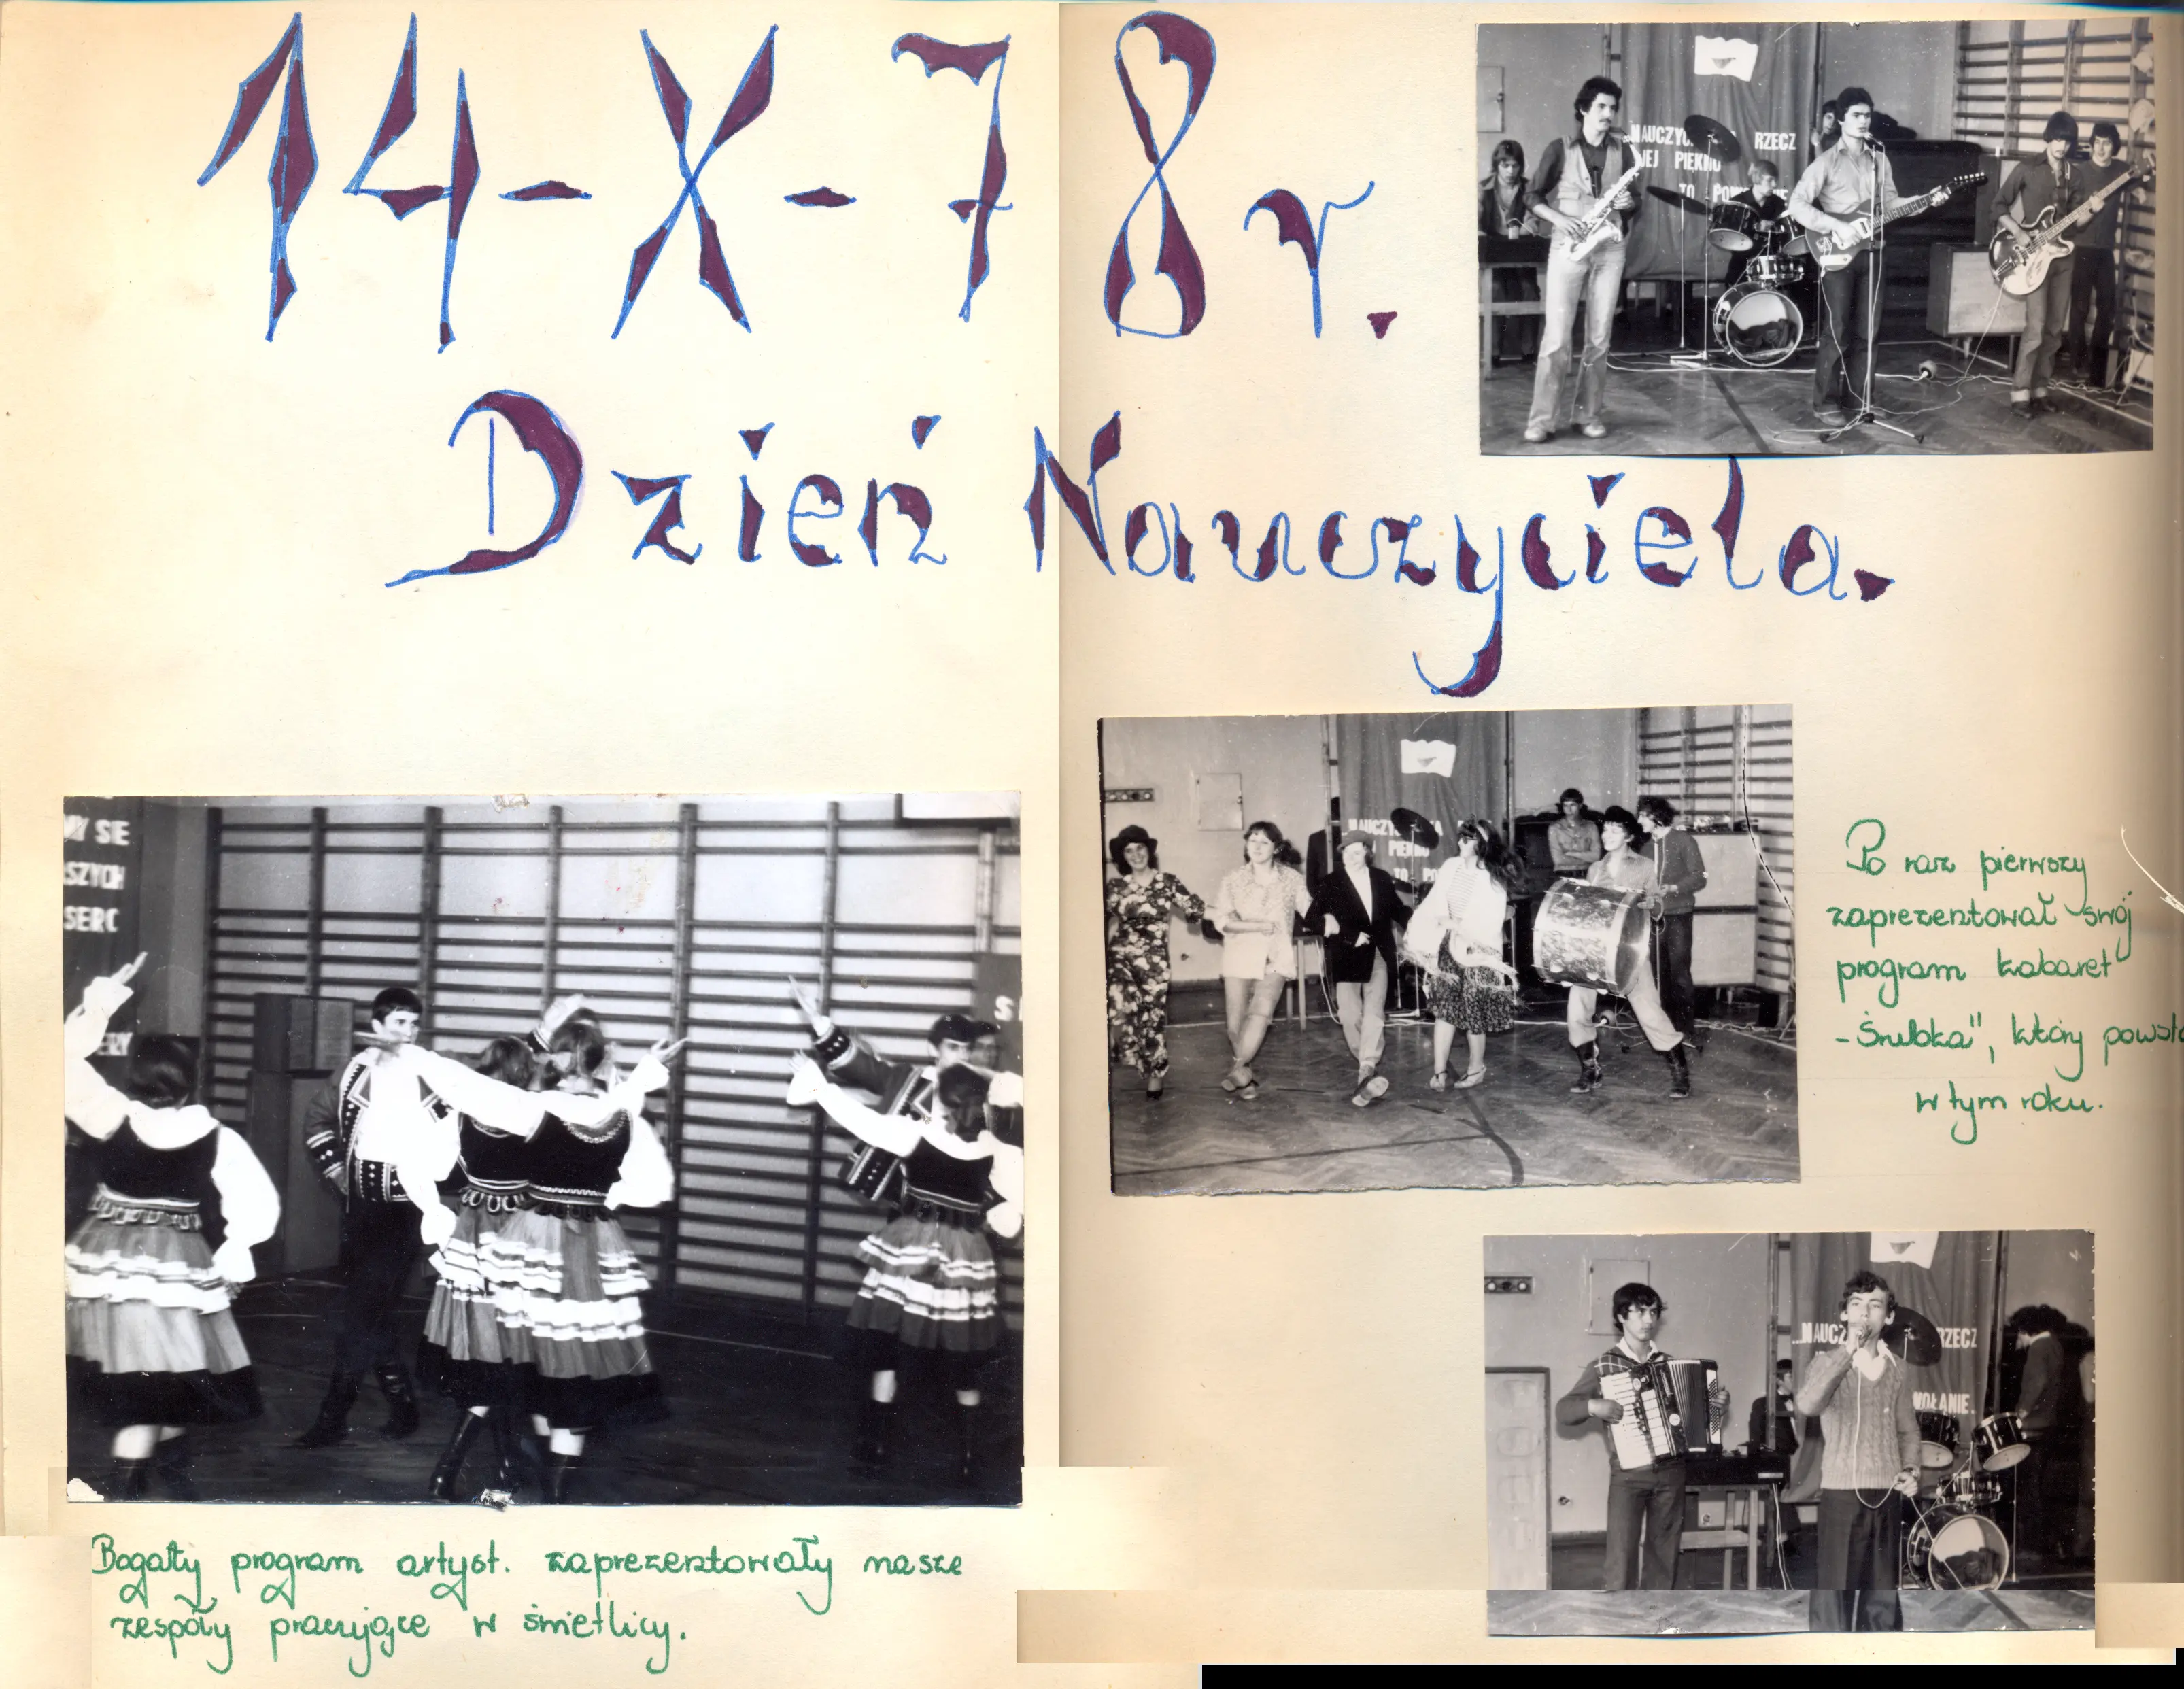 14-X-78r.
Dzień Nauczyciela.
...NAUCZYC RZECZ
WEJ PIĘKNO
TO
...NAUCZYC KA
PIĘKNO
TO
Po raz pierwszy
zaprezentował swój
program kabaret
który
w tym roku.
MY SIE
SZYCH
SERC
...NAUCZ RZECZ
WOŁANIE.
Bogaty program artyst. zaprezentowały nasze
zespoły pracujące w świetlicy.